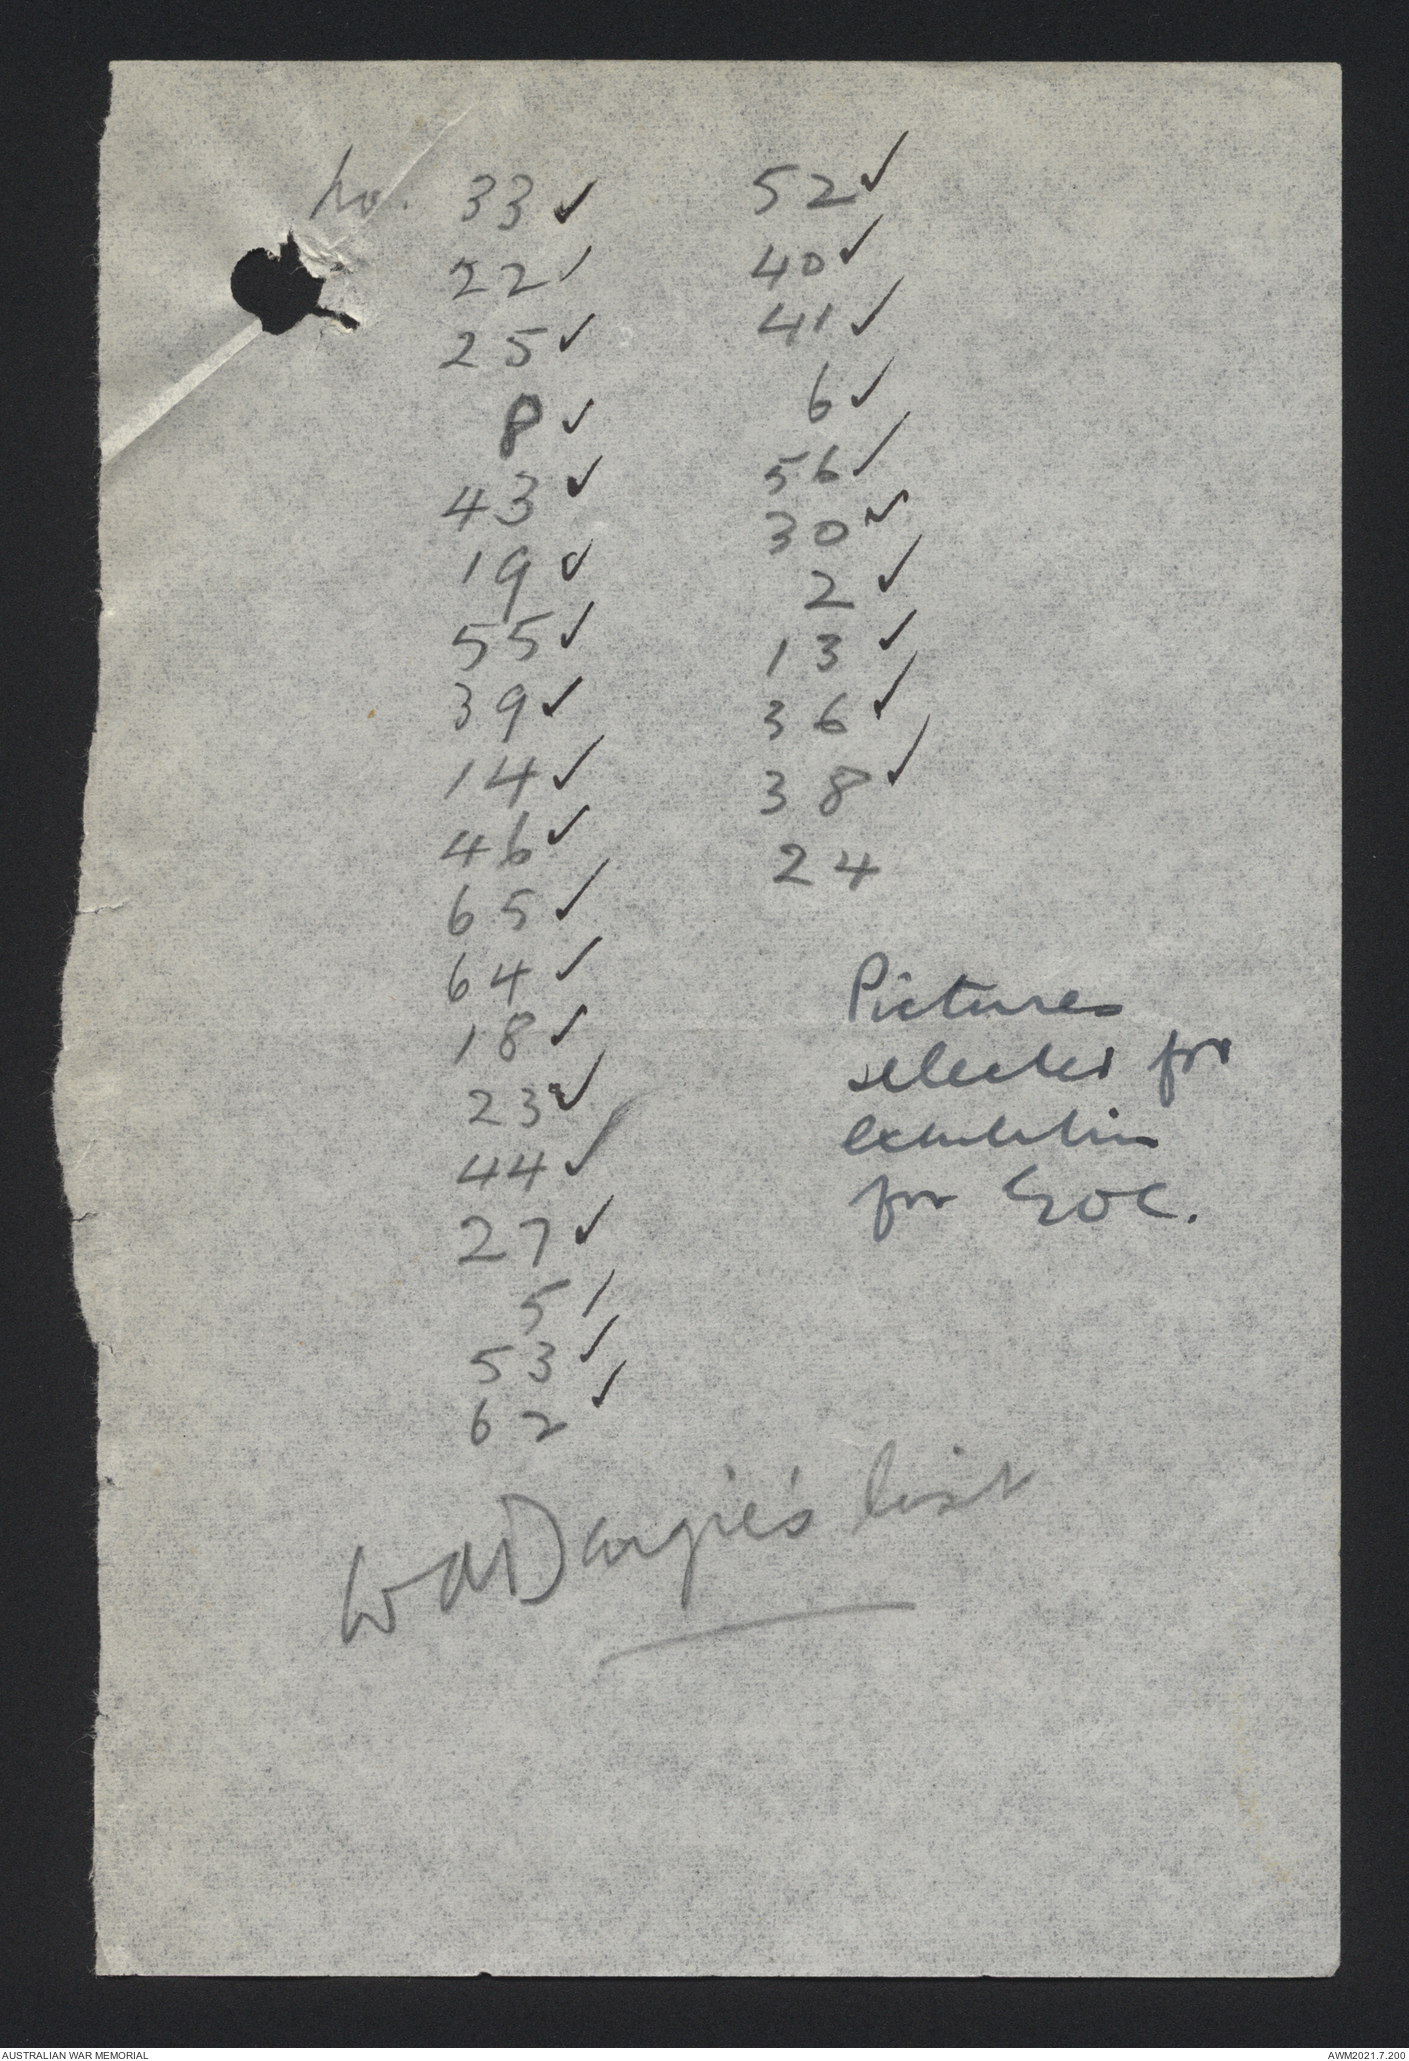 No. 33 ✓
22 ✓
25 ✓
8 ✓
43 ✓
19 ✓
55 ✓
39 ✓
14 ✓
46 ✓
65 ✓
64 ✓
18 ✓
23 ✓
44 ✓
27 ✓
5 /
53 ✓
62 ✓
52 ✓
40 ✓
41 ✓
6 ✓
56 ✓
30 ✓
2 ✓
13 ✓
36 ✓
38 ✓
24
Pictures
selected for
exhibition
for GOC.
W A Dargie's list
AUSTRALIAN WAR MEMORIAL
AWM2021.7.200